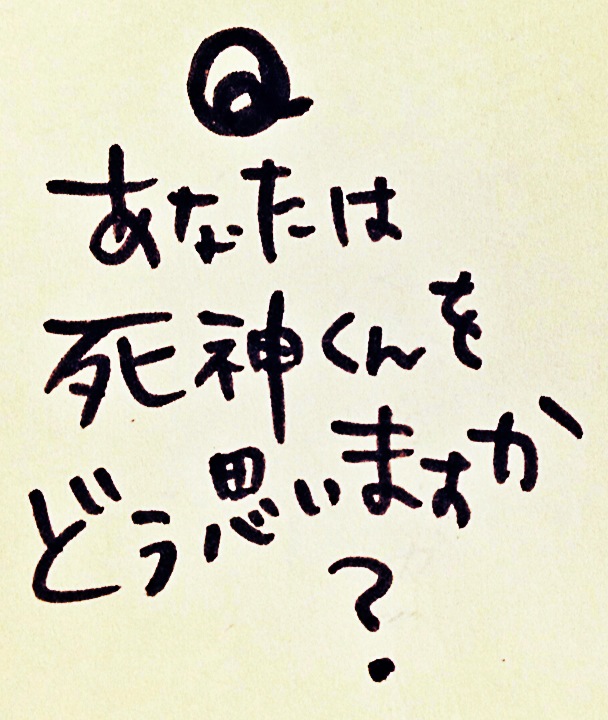 Q
あなたは
死神くんを
どう思いますか
?